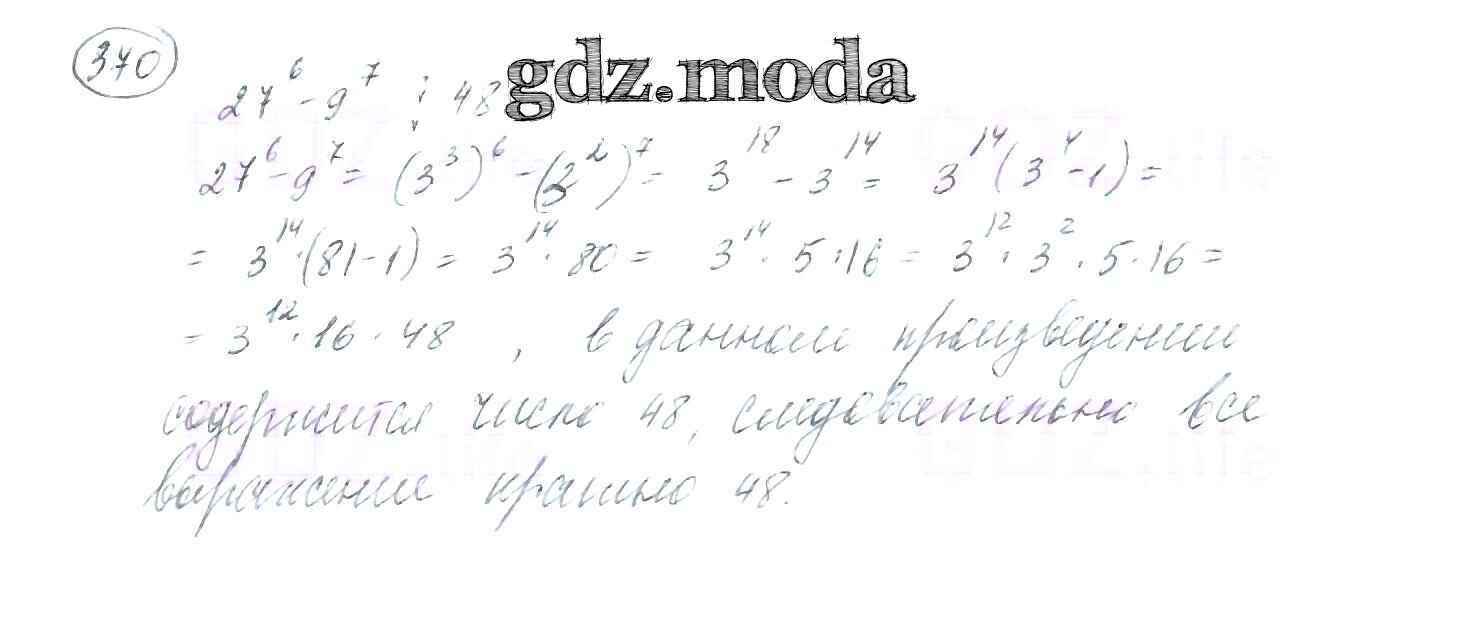 370
gdz.moda
27⁶ - 9⁷ ⋮ 48
27⁶ - 9⁷ = (3³)⁶ - (3²)⁷ = 3¹⁸ - 3¹⁴ = 3¹⁴(3⁴ - 1) =
= 3¹⁴ · (81 - 1) = 3¹⁴ · 80 = 3¹⁴ · 5 · 16 = 3¹² · 3² · 5 · 16 =
= 3¹² · 16 · 48 , в данном произведении
содержится число 48, следовательно все
выражение кратно 48.